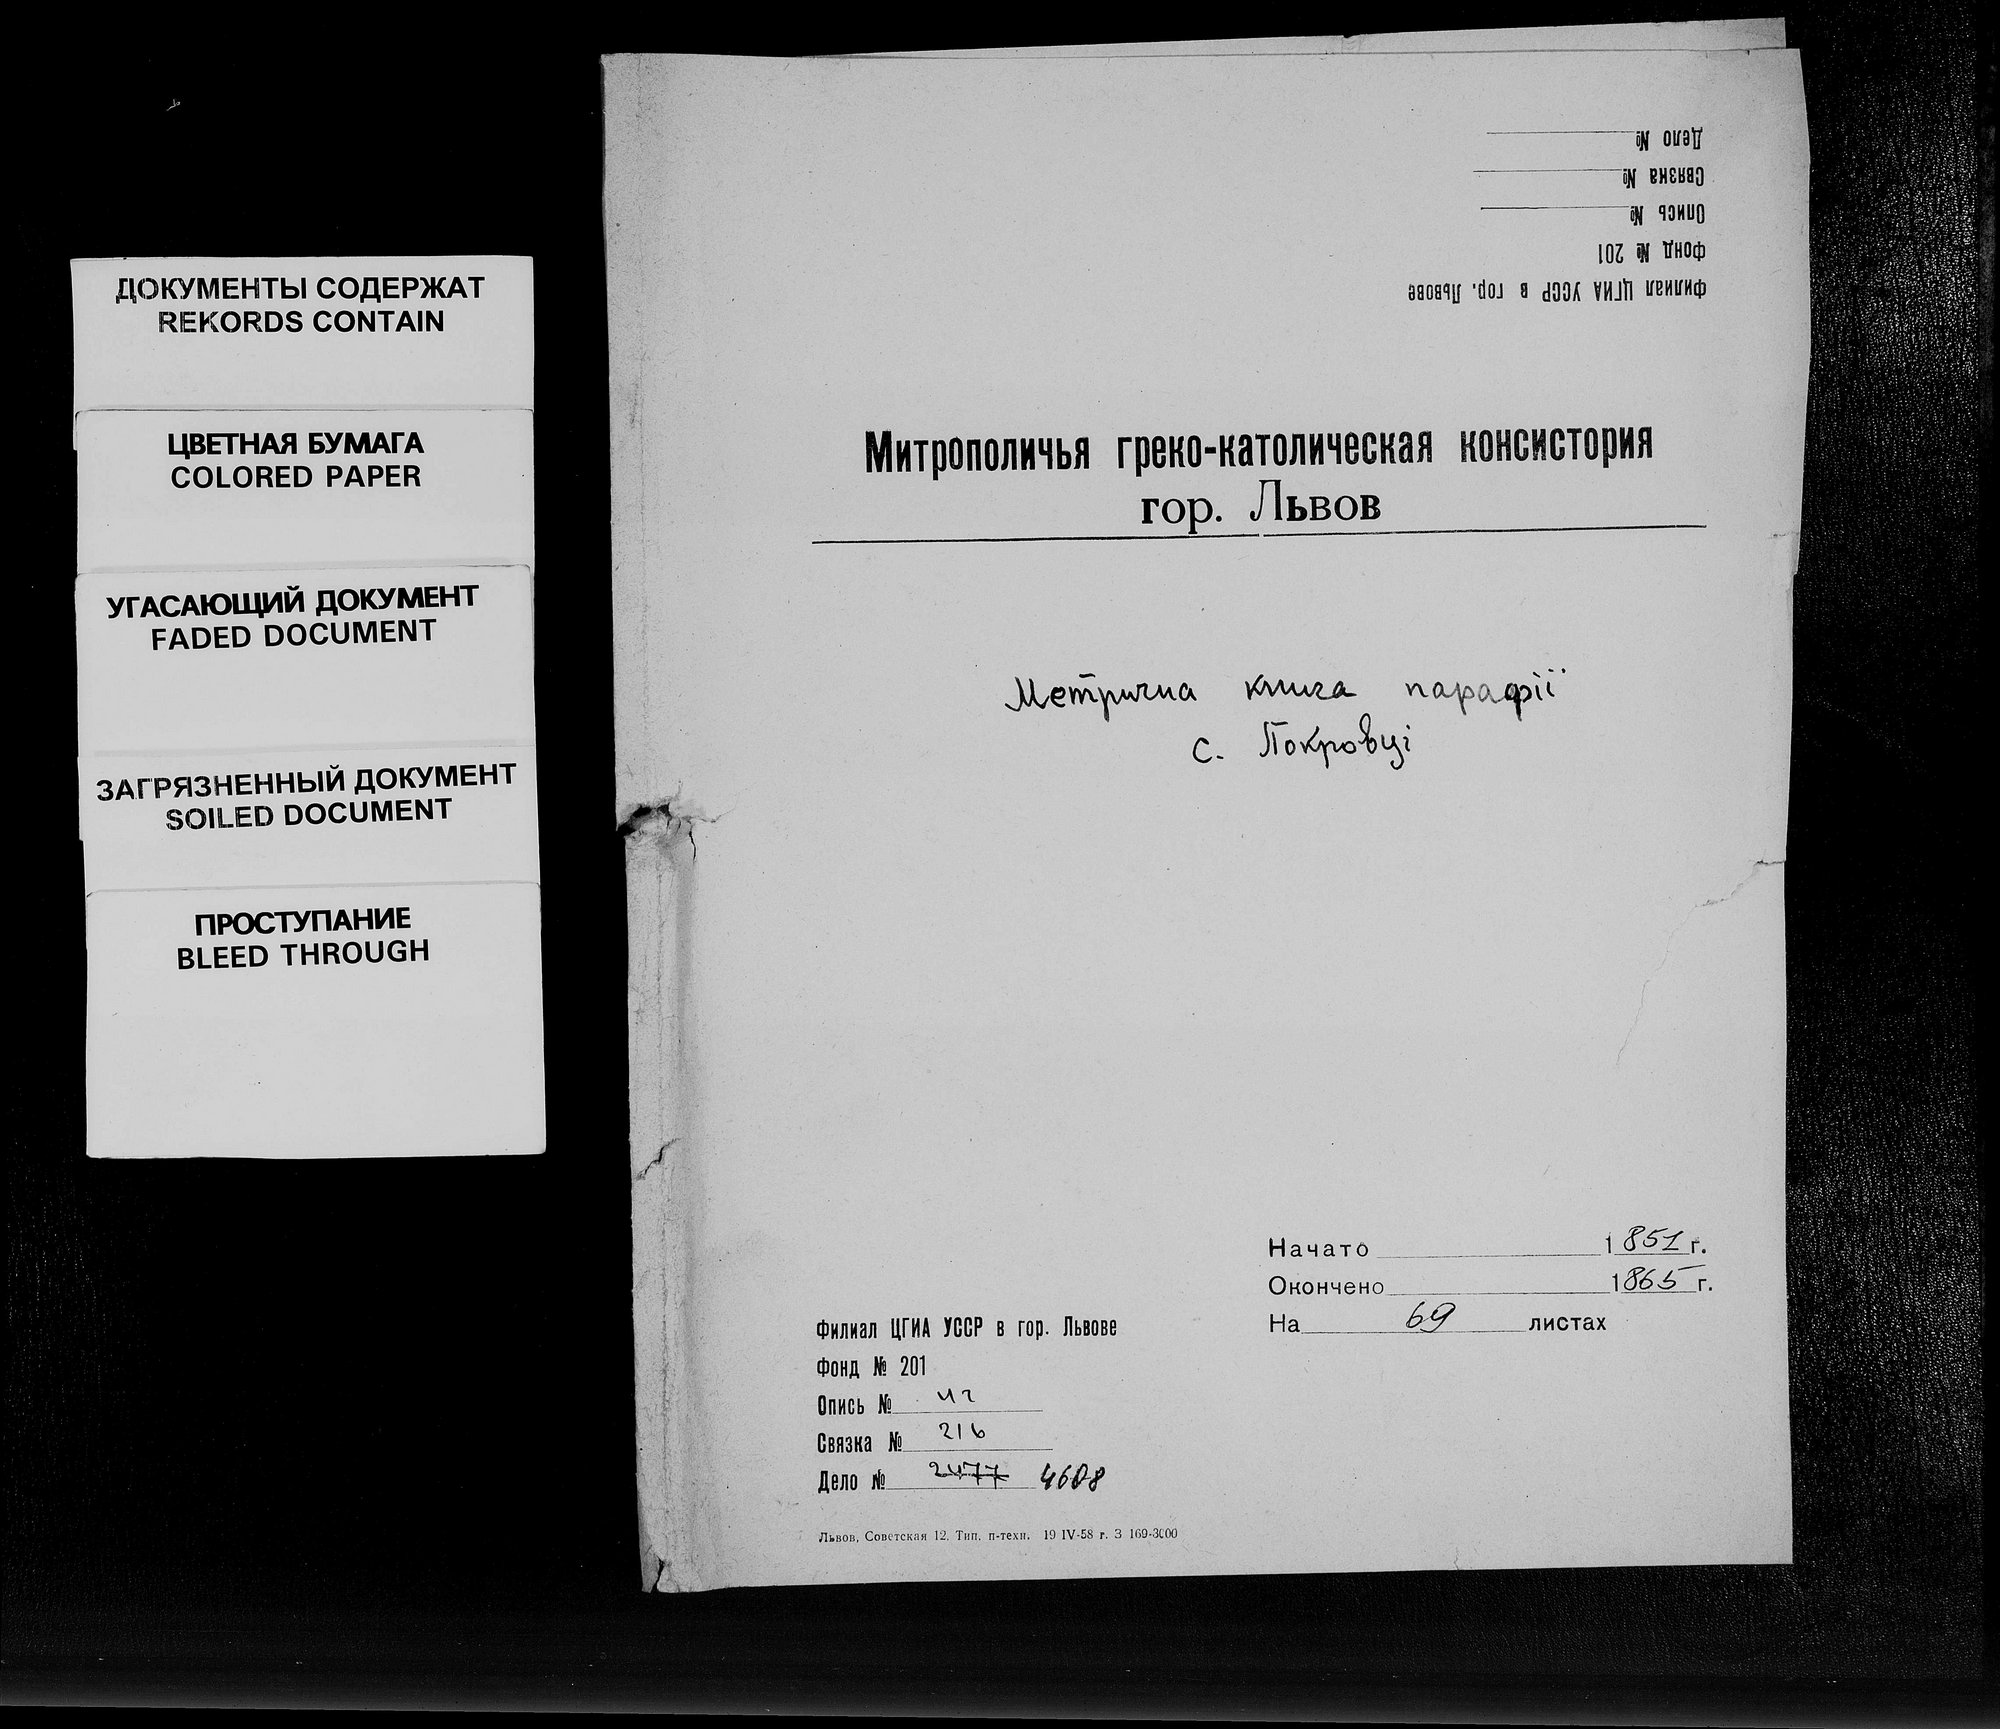 ДОКУМЕНТЫ СОДЕРЖАТ
REKORDS CONTAIN
ЦВЕТНАЯ БУМАГА
COLORED PAPER
УГАСАЮЩИЙ ДОКУМЕНТ
FADED DOCUMENT
ЗАГРЯЗНЕННЫЙ ДОКУМЕНТ
SOILED DOCUMENT
ПРОСТУПАНИЕ
BLEED THROUGH
Филиал ЦГИА УССР в гор. Львове
Фонд № 201
Опись №
Связка №
Дело №
Митрополичья греко-католическая консистория
гор. Львов
Метрична книга парафії
с. Покровці
Начато 1851 г.
Окончено 1865 г.
На 69 листах
Филиал ЦГИА УССР в гор. Львове
Фонд № 201
Опись №
Связка № 216
Дело № 2477 4608
Львов, Советская 12. Тип. п-техн. 19 IV-58 г. З 169-3000